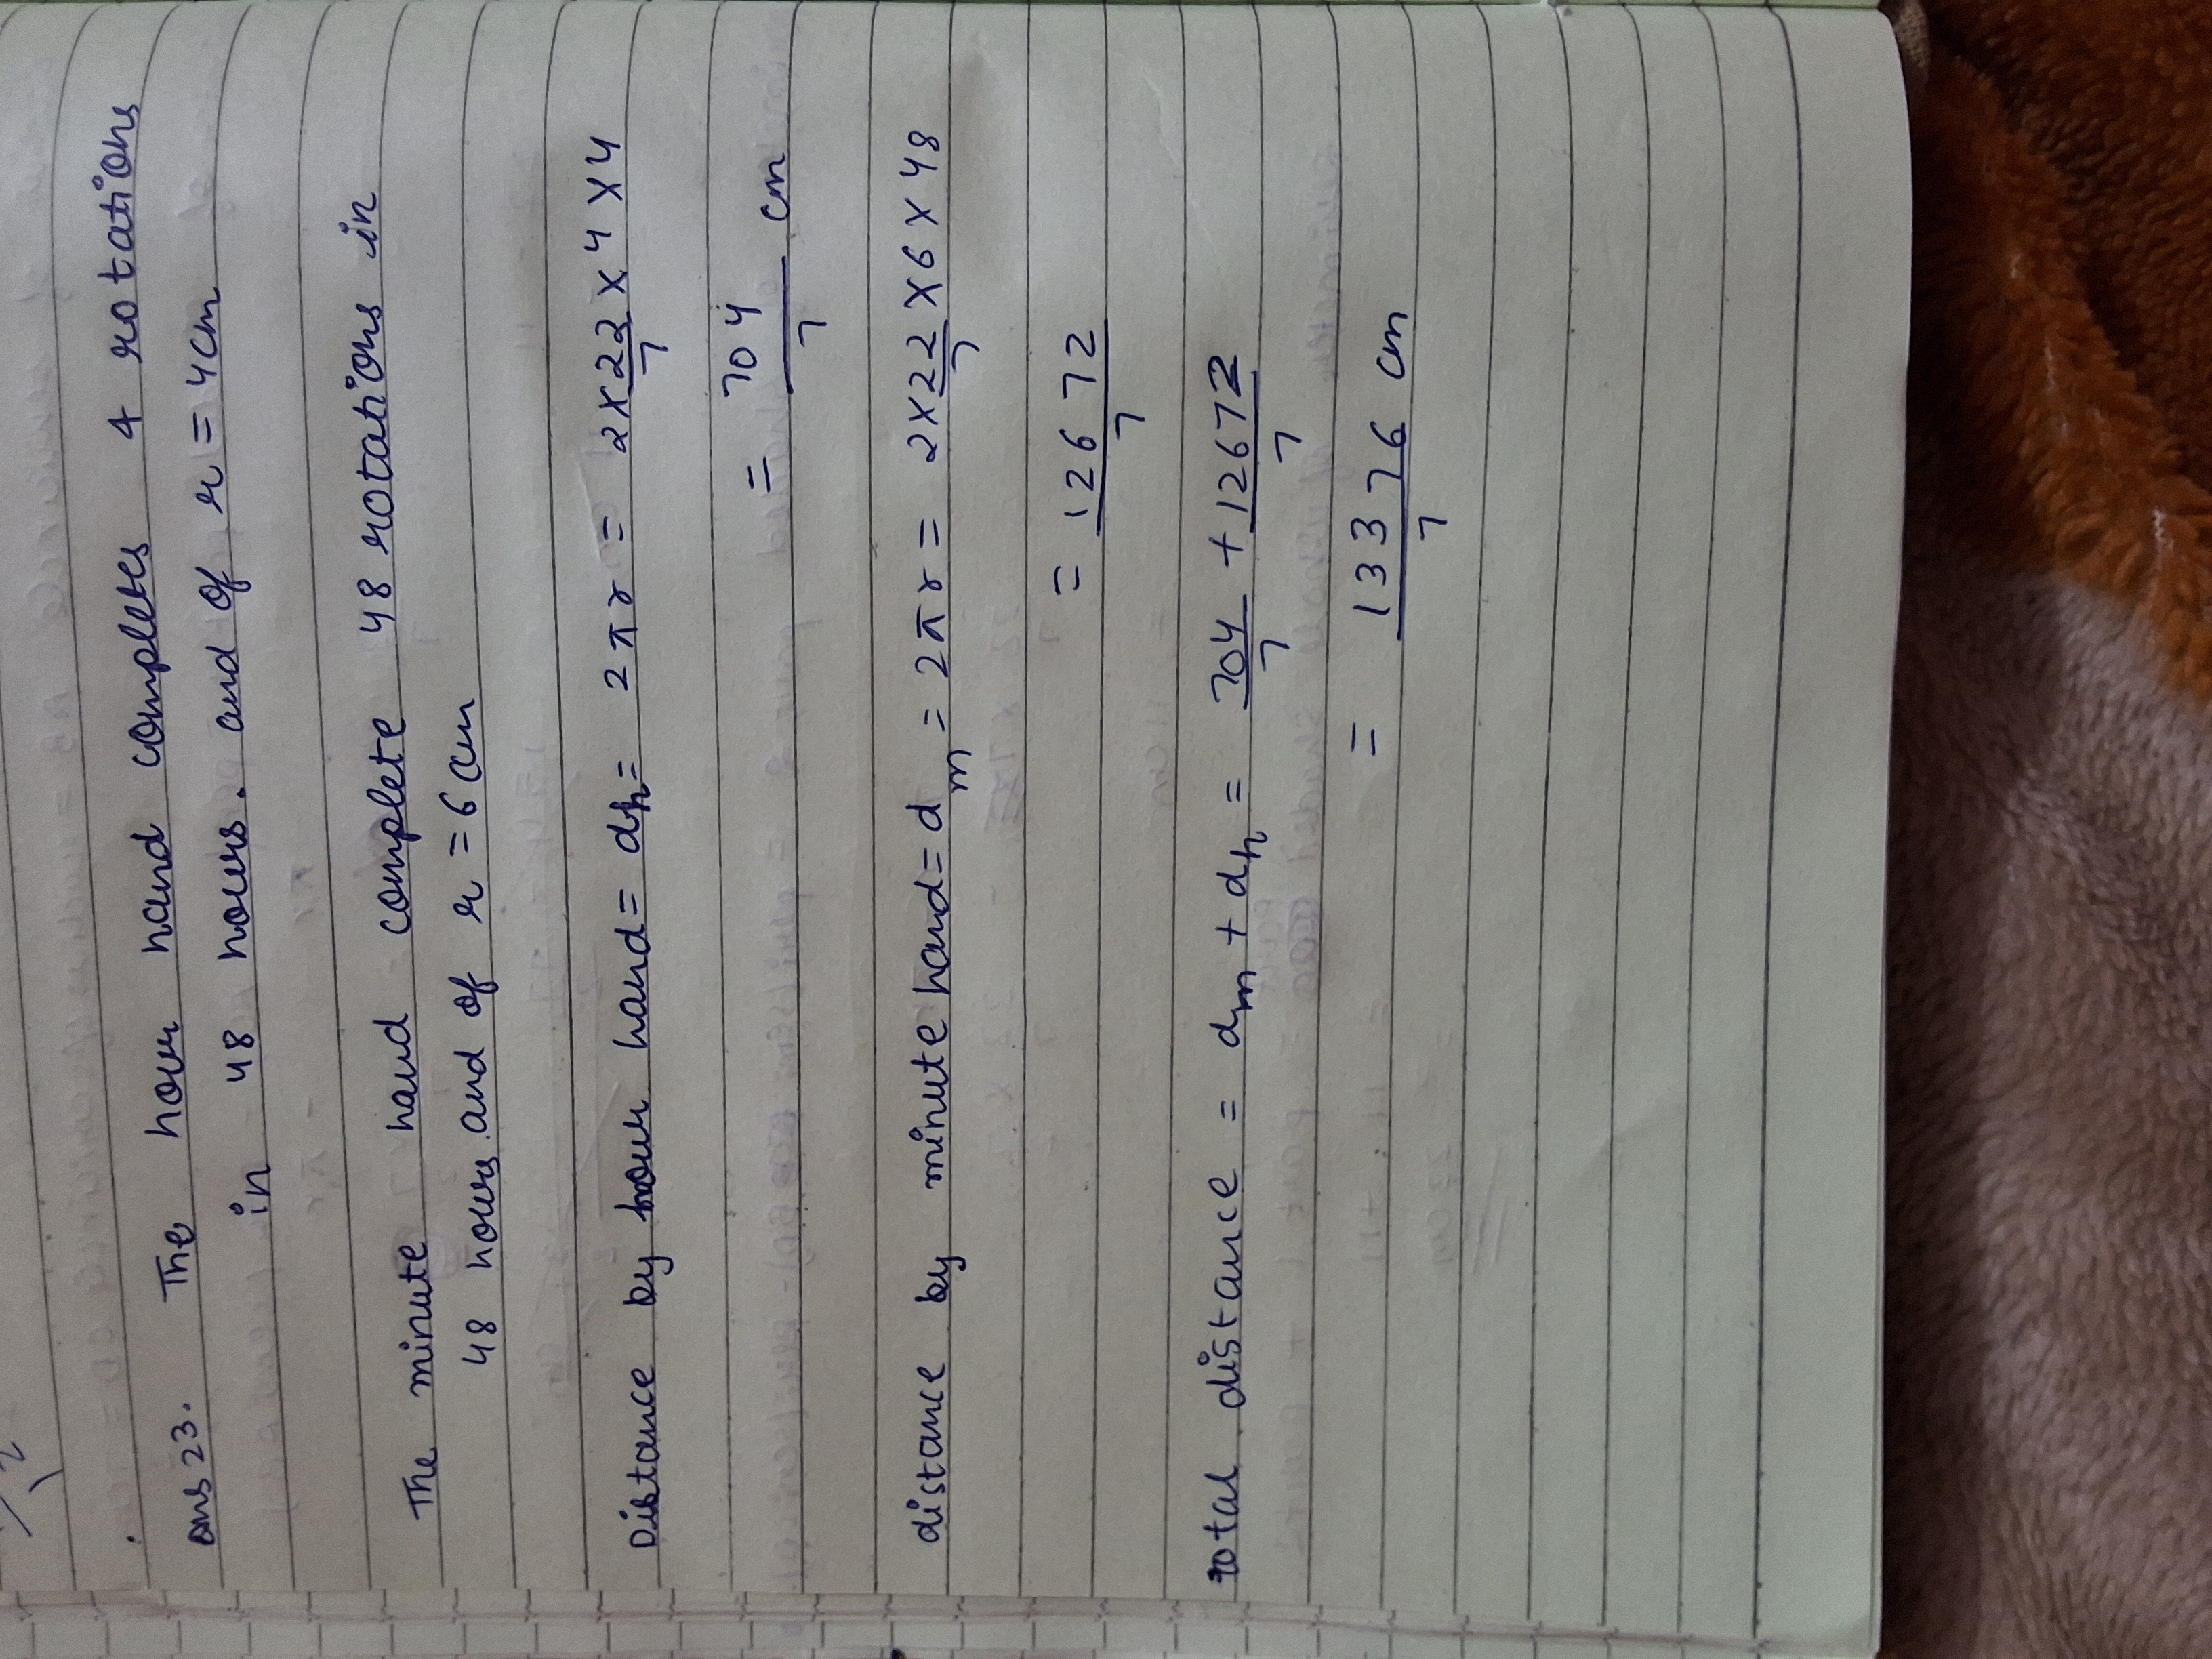 ans 23. The hour hand completes 4 rotations
in 48 hours. and of r = 4cm
The minute hand complete 48 rotations in
48 hours and of r = 6 cm
Distance by hour hand = dh = 2πr = 2×22/7 ×4 ×4
= 704/7 cm
distance by minute hand = dm = 2πr = 2×22/7 ×6×48
= 12672/7
total distance = dm + dh = 704/7 + 12672/7
= 13376/7 cm